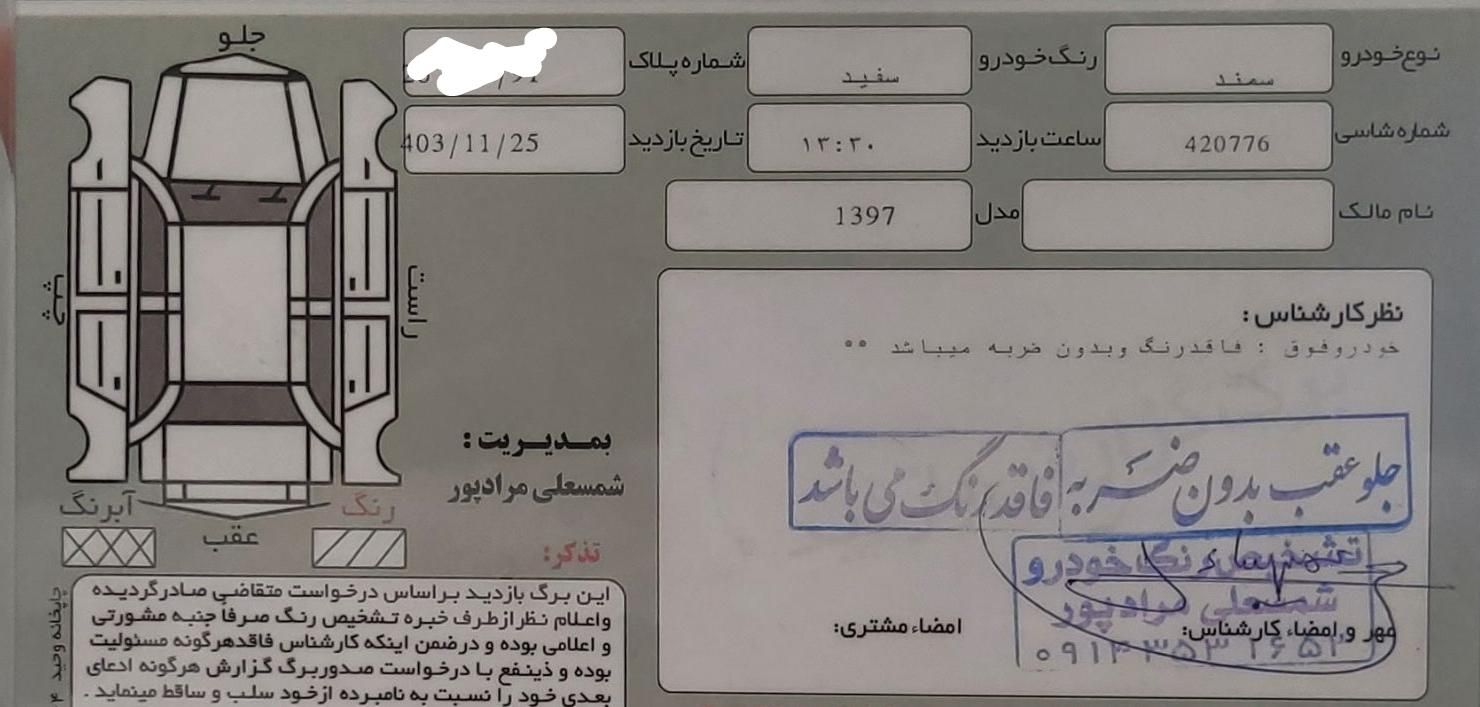 نوع خودرو سمند رنگ خودرو سفید شماره پلاک
شماره شاسی 420776 ساعت بازدید ۱۳:۳۰ تاریخ بازدید 403/11/25
نام مالک مدل 1397
نظر کارشناس :
خودروفوق : فاقدرنگ وبدون ضربه میباشد **
جلو عقب بدون ضربه فاقد رنگ می باشد
تشخیص رنگ خودرو
شمسعلی مرادپور
مهر و امضاء کارشناس:
امضاء مشتری:
جلو
چپ
راست
عقب
آبرنگ
رنگ
بمدیریت :
شمسعلی مرادپور
تذکر:
این برگ بازدید براساس درخواست متقاضی صادرگردیده
واعلام نظر ازطرف خبره تشخیص رنگ صرفاً جنبه مشورتی
و اعلامی بوده و درضمن اینکه کارشناس فاقدهرگونه مسئولیت
بوده و ذینفع با درخواست صدوربرگ گزارش هرگونه ادعای
بعدی خود را نسبت به نامبرده ازخود سلب و ساقط مینماید .
چاپخانه وحید